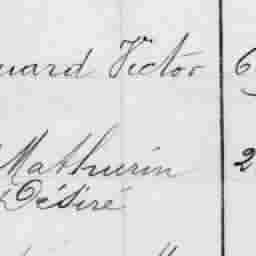 uard Victor 6
Mathurin 2
Désiré